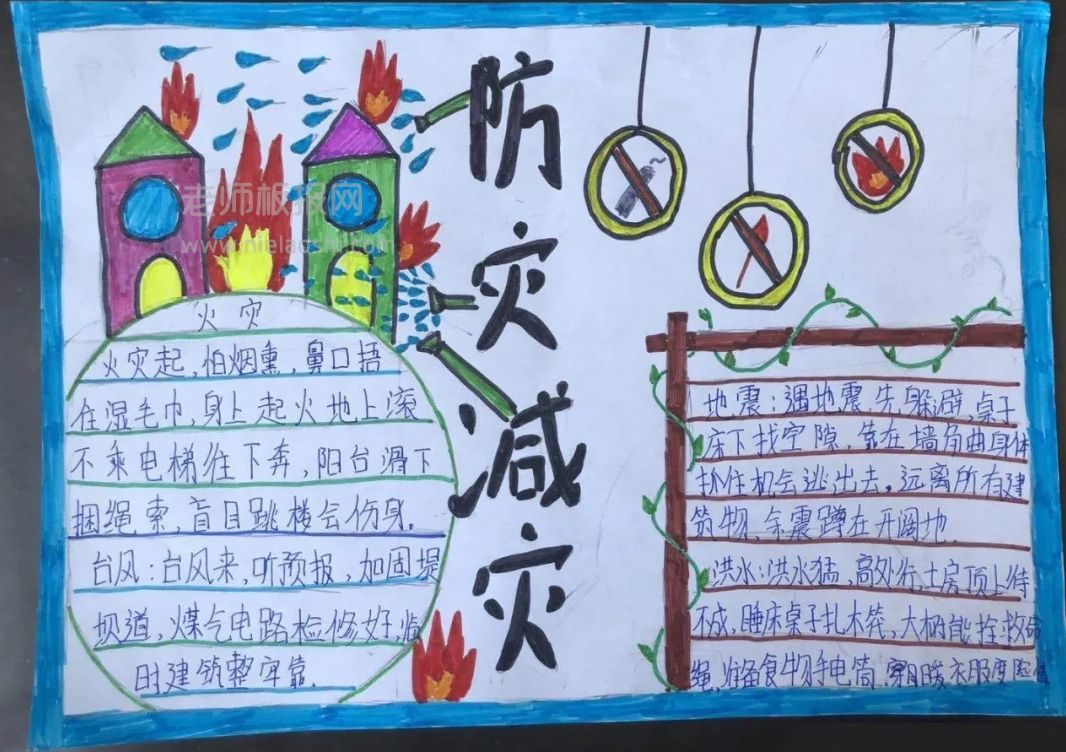 防灾减灾
老师板报网
火灾
火灾起，怕烟熏，鼻口捂
住湿毛巾，身上起火地上滚
不乘电梯往下奔，阳台滑下
捆绳索，盲目跳楼会伤身.
台风：台风来，听预报，加固堤
坝道，煤气电路检修好，临
时建筑整牢靠.
地震：遇地震，先躲避，桌子
床下找空隙，靠在墙角曲身体
抓住机会逃出去，远离所有建
筑物，余震蹲在开阔地.
洪水：洪水猛，高处行，土房顶上待
不成，睡床桌子扎木筏，大树能拴救命
绳，准备食物手电筒，穿暖衣服度险